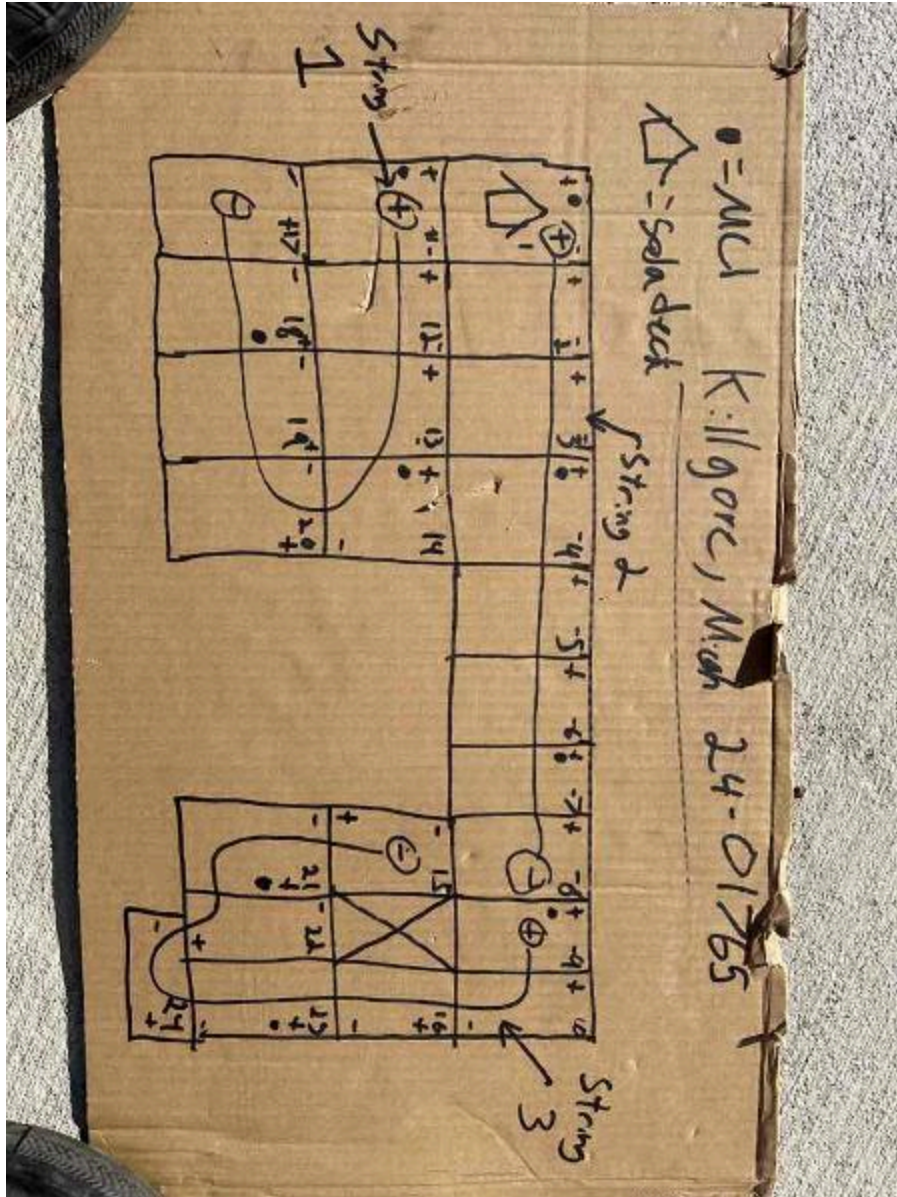 Killgore, Mich 24-01765
•=MCI
=Soladeck
String 2
String
1
String
3
+ 1 -
+ 2 -
+ 3 -
+ 4 -
+ 5 -
+ 6 -
+ 7 -
+ 8 -
+ 9 -
+ 10
+ 11 -
+ 12 -
+ 13 -
+ 14
- 15
+
- 
16 +
- 17 +
- 18 +
- 19 +
-
20 +
- 21 +
- 22
+
-
23 +
-
24 +